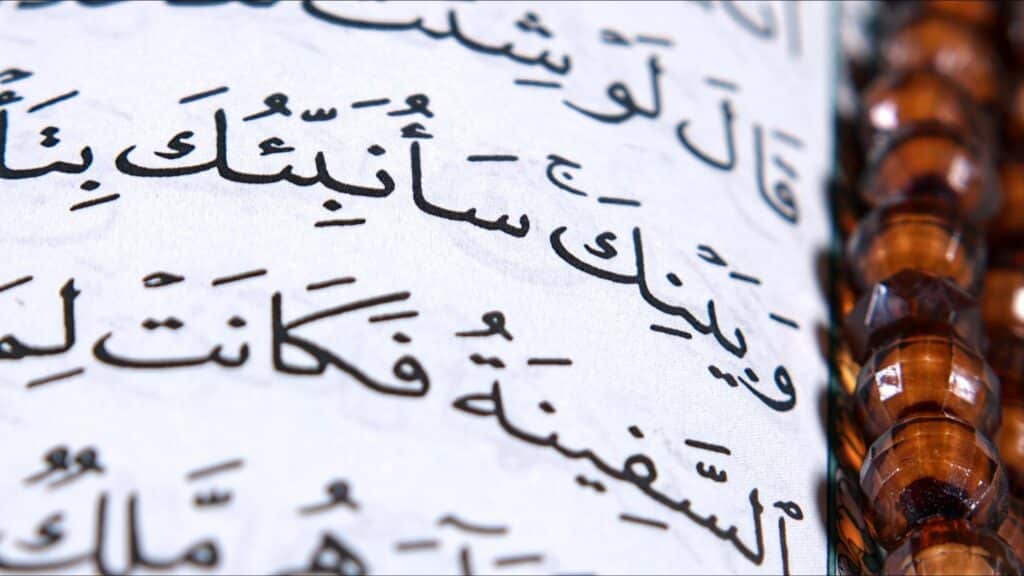 قَالَ لَوْ شِئْتَ
وَبَيْنِكَ ۚ سَأُنَبِّئُكَ بِتَأ
ٱلسَّفِينَةُ فَكَانَتْ لِمَ
مَّلِكٌ